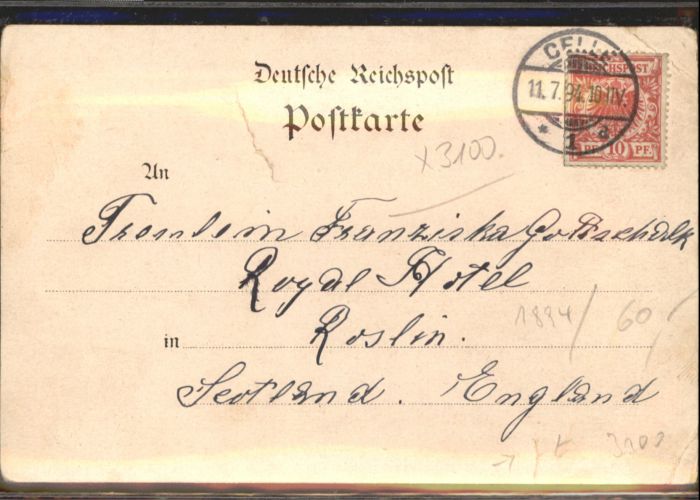 Deutsche Reichspost
Postkarte
CELLE
11.7.94.10-11V.
* 1 a
REICHSPOST
10 PF.
x3100.
An
Fräulein Franziska Gottschalk
Royal Hotel
1894/ 60,
in Roslin.
Scotland. England
3100